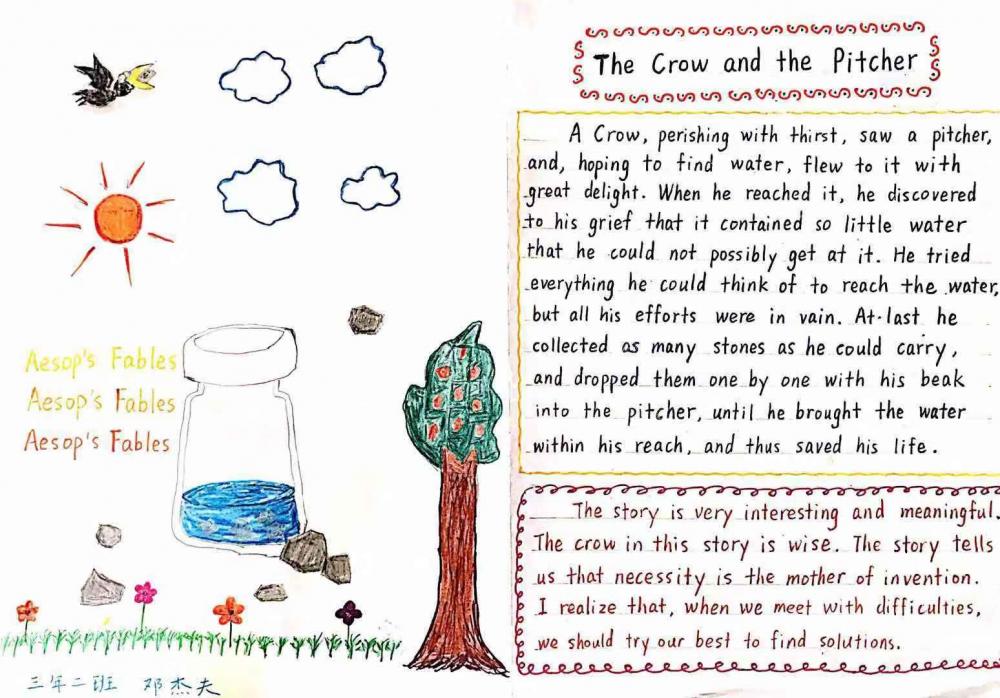 Aesop's Fables
Aesop's Fables
Aesop's Fables
三年二班 邓杰夫
The Crow and the Pitcher
A Crow, perishing with thirst, saw a pitcher,
and, hoping to find water, flew to it with
great delight. When he reached it, he discovered
to his grief that it contained so little water
that he could not possibly get at it. He tried
everything he could think of to reach the water,
but all his efforts were in vain. At last he
collected as many stones as he could carry,
and dropped them one by one with his beak
into the pitcher, until he brought the water
within his reach, and thus saved his life.
The story is very interesting and meaningful.
The crow in this story is wise. The story tells
us that necessity is the mother of invention.
I realize that, when we meet with difficulties,
we should try our best to find solutions.